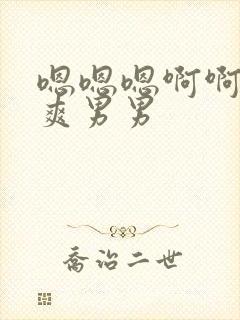 嗯嗯嗯啊啊
爽男男
乔治二世